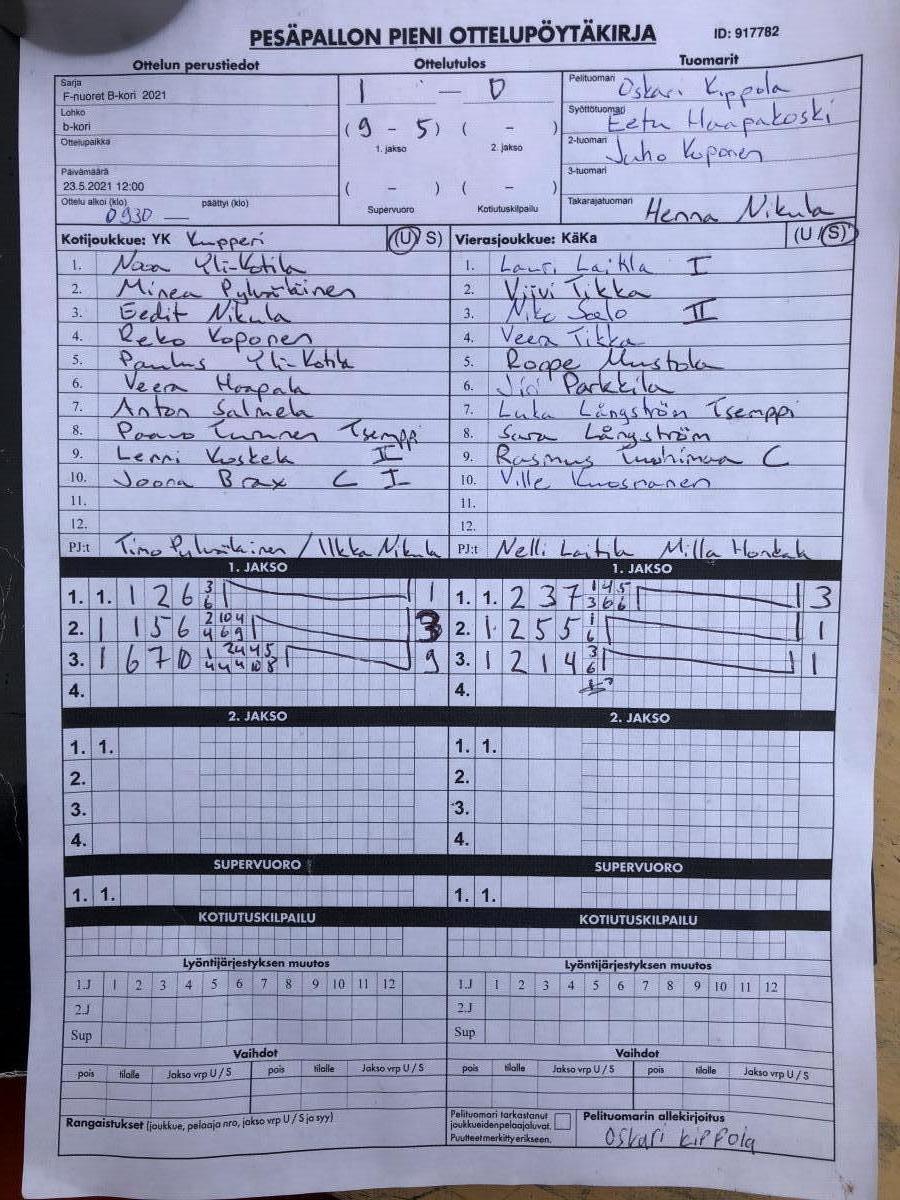 PESÄPALLON PIENI OTTELUPÖYTÄKIRJA ID: 917782
Ottelun perustiedot Ottelutulos Tuomarit
Sarja
F-nuoret B-kori 2021
Lohko
b-kori
Ottelupaikka
Päivämäärä
23.5.2021 12:00
Ottelu alkoi (klo) päättyi (klo)
0930 —
1 — 0
(9 - 5) ( - )
1. jakso 2. jakso
( - ) ( - )
Supervuoro Kotiutuskilpailu
Pelituomari Oskari Kippola
Syöttötuomari Eetu Haapakoski
2-tuomari Juho Koponen
3-tuomari
Takarajatuomari Henna Nikula
Kotijoukkue: YK Kupperi (U/ S)
1. Noora Yli-Kotila
2. Minea Pylväläinen
3. Eedit Nikula
4. Reko Koponen
5. Paulus Yli-Kotila
6. Veera Haapala
7. Anton Salmela
8. Paavo Tsemppi
9. Lenni Koskela II
10. Joona Brax C I
11.
12.
PJ:t Timo Pylväläinen / Ilkka Nikula
Vierasjoukkue: KäKa (U / S)
1. Lauri I
2. Viivi Tikka
3. Niko Salo II
4. Veera Tikka
5. Roope Mustola
6. Parkkila
7. Luka Långström Tsemppi
8. Sara Långström
9. Rasmus C
10. Ville Kuosmanen
11.
12.
PJ:t Nelli Milla
1. JAKSO 1. JAKSO
1. 1. 1 2 6 3 6 1
2. 1 1 5 6 2 10 4 4 6 9 3
3. 1 6 7 10 1 2 4 4 5 4 4 4 10 8 9
4.
1. 1. 2 3 7 1 4 5 3 6 6 3
2. 1. 2 5 5 1 6 1
3. 1 2 1 4 3 6 1
4.
2. JAKSO 2. JAKSO
1. 1. 1. 1.
2. 2.
3. 3.
4. 4.
SUPERVUORO SUPERVUORO
1. 1. 1. 1.
KOTIUTUSKILPAILU KOTIUTUSKILPAILU
Lyöntijärjestyksen muutos Lyöntijärjestyksen muutos
1.J 1 2 3 4 5 6 7 8 9 10 11 12 1.J 1 2 3 4 5 6 7 8 9 10 11 12
2.J 2.J
Sup Sup
Vaihdot Vaihdot
pois tilalle Jakso vrp U / S pois tilalle Jakso vrp U / S pois tilalle Jakso vrp U / S pois tilalle Jakso vrp U / S
Rangaistukset (joukkue, pelaaja nro, jakso vrp U / S ja syy)
Pelituomari tarkastanut
joukkueiden pelaajaluvat.
Puutteet merkitty erikseen.
Pelituomarin allekirjoitus
Oskari Kippola